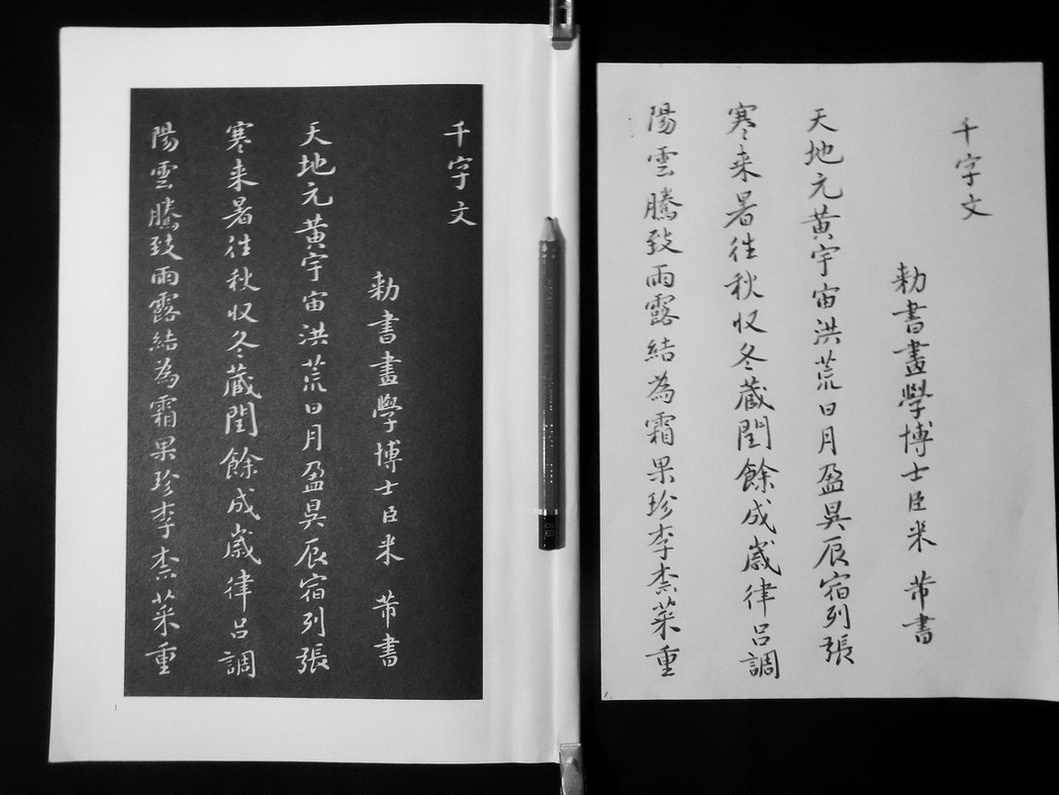 千字文
勅書畫學博士臣米芾書
天地元黃宇宙洪荒日月盈昃辰宿列張
寒来暑往秋収冬蔵閏餘成歲律呂調
陽雲騰致雨露結為霜果珍李柰菜重
千字文
勅書畫學博士臣米芾書
天地元黃宇宙洪荒日月盈昃辰宿列張
寒来暑往秋収冬蔵閏餘成歲律呂調
陽雲騰致雨露結為霜果珍李柰菜重